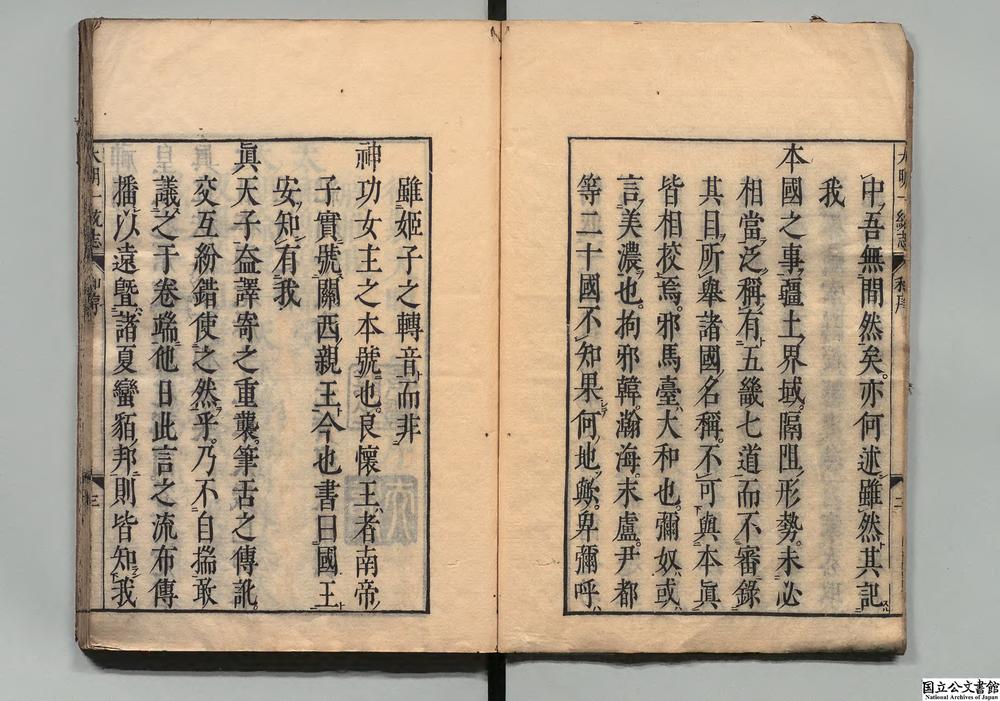 中吾無間然矣亦何述雖然其記
我
本國之事疆土界域隔阻形勢未必
相當泛稱有五畿七道而不審錄
其目所舉諸國名稱不可與本眞
皆相挍焉邪馬臺大和也彌奴或
言美濃也拘邪韓瀚海末盧尹都
等二十國不知果何地歟卑彌呼
雖姬子之轉音而非
神功女主之本號也良懷王者南帝
子實號關西親王今也書曰國王
安知有我
眞天子益譯寄之重襲筆舌之傳訛
交互紛錯使之然乎乃不自揣敢
議之于卷端他日此言之流布傳
播以遠曁諸夏蠻貊邦則皆知我
大明一統志
二
大明一統志
三
国立公文書館
National Archives of Japan